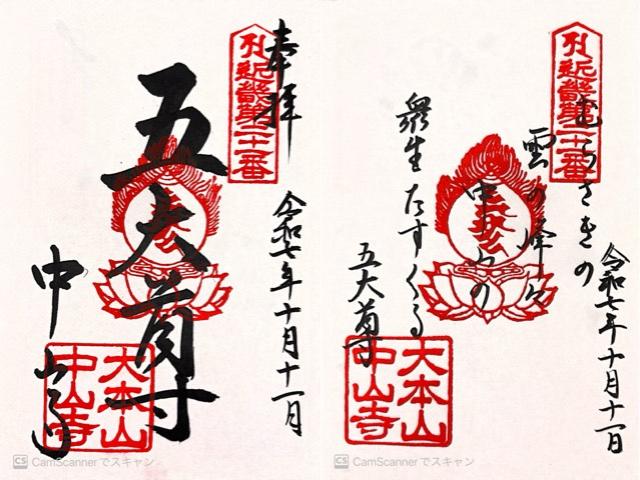 奉拝
五大尊
中山寺
令和七年十月十一日
大本山
中山寺
CS CamScannerでスキャン
むらさきの
雲の峰々
中山の
衆生たすくる
五大尊
令和七年十月十一日
大本山
中山寺
CS CamScannerでスキャン